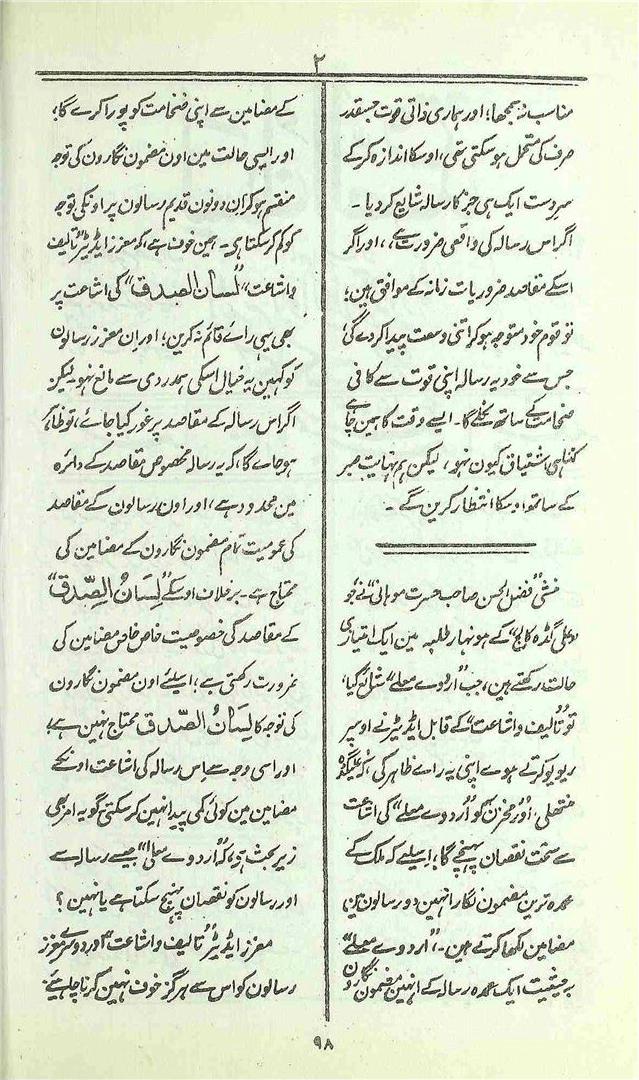 ۲
مناسب نہ سمجھا؛ اور ہماری ذاتی قوت جسقدر
صرف کی متحمل ہو سکتی تھی، اوسکا اندازہ کر کے
سر دست ایک ہی جز کا رسالہ شایع کر دیا۔
اگر اس رسالہ کی واقعی ضرورت ہے، اور اگر
اسکے مقاصد ضروریات زمانہ کے موافق ہین؛
تو قوم خود متوجہ ہو کر اتنی وسعت پیدا کر دے گی
جس سے خود یہ رسالہ اپنی قوت سے کافی
ضخامت کے ساتھ نکلے گا۔ ایسے وقت کا ہمین چاہے
کتنا ہی اشتیاق کیون نہو، لیکن ہم نہایت صبر
کے ساتھ اوسکا انتظار کرین گے۔
منشی "فضل الحسن صاحب حسرت موہانی" نے جو
"علی گڈہ کالج" کے ہونہار طلبہ مین ایک امتیازی
حالت رکھتے ہین، جب "اردوے معلے" شائع کیا،
تو "تالیف و اشاعت" کے قابل ایڈیٹر نے اوسپر
ریویو کرتے ہوے اپنی یہ راے ظاہر کی، کہ "علیگڈہ
منتھلی؛ اور مخزن" کو "اُردوے معلے" کی اشاعت
سے سخت نقصان پہنچے گا؛ اِسلیے کہ ملک کے
عمدہ ترین مضمون نگار انہین دو رسالون مین
مضامین لکھا کرتے ہین۔ "اُردوے معلے"
بہ حیثیت ایک عمدہ رسالہ کے انہین مضمون نگارون
کے مضامین سے اپنی ضخامت کو پورا کرے گا؛
اور ایسی حالت مین اون مضمون نگارون کی توجہ
منقسم ہو کر ان دونون قدیم رسالون پر اونکی توجہ
کو کم کر سکتا ہی۔ ہمین خوف ہے، کہ معزز ایڈیٹر "تالیف
و اشاعت" "لسان الصدق" کی اشاعت پر
بھی یہی راے قائم نہ کرین؛ اور اِن معزز رسالون
کو کہین یہ خیال اسکی ہمدردی سے مانع نہو۔ لیکن
اگر اس رسالہ کے مقاصد پر غور کیا جاے، تو ظاہر
ہو جاے گا، کہ یہ رسالہ مخصوص مقاصد کے دائرہ
مین محدود ہے، اور اون رسالون کے مقاصد
کی عمومیت تمام مضمون نگارون کے مضامین کی
محتاج ہے۔ برخلاف اوسکے "لِسَانُ الصِّدق"
کے مقاصد کی خصوصیت خاص خاص مضامین کی
ضرورت رکھتی ہے؛ اِسلئے اون مضمون نگارون
کی توجہ کا لِسَانُ الصّدق محتاج نہین ہے؛
اور اسی وجہ سے اِس رسالہ کی اشاعت اونکے
مضامین مین کوئی کمی پیدا نہین کر سکتی گو یہ امر بھی
زیر بحث ہو، کہ "اُردوے معلیٰ" جیسے رسالہ سے
اور رسالون کو نقصان پہنچ سکتا ہے یا نہین؟
معزز ایڈیٹر "تالیف و اشاعت" اور دوسرے معزز
رسالون کو اس سے ہرگز خوف نہین کرنا چاہیے
۹۸